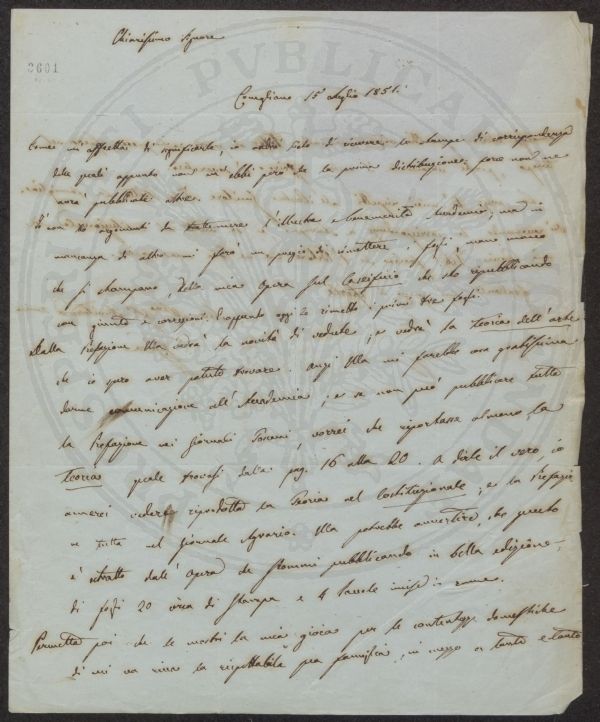 Chiarissimo Signore
3601
Conegliano 15 Luglio 1851.
Come mi affrettai di significarle, io ebbi di ricevere le stampe di corrispondenza
delle quali appunto non ebbi però la prima distribuzione: forse non ne
avrà pubblicate altre.
di trattenere l'illustre e benemerita Accademia; ma in
mancanza di altro mi farò un pregio di rimettere i fogli, mano mano
che si stampano, della mia Opera sul Caseificio che sto ripubblicando
con giunte e correzioni. E appunto oggi Le rimetto i primi tre fogli.
Dalla Prefazione Ella vedrà la novità di vedute; e vedrà la Teoria dell'arte
che io spero aver potuto trovare. Anzi Ella mi farebbe cosa gratissima
darne comunicazione all'Accademia; e se non può pubblicare tutta
la Prefazione nei Giornali Toscani, vorrei che riportasse almeno la
Teoria quale trovasi dalla pag. 16 alla 20. A dirle il vero, io
amerei vedere riportata la Teoria nel Costituzionale; e la Prefazio
ne tutta nel Giornale Agrario. Ella potrebbe avvertire, che questo
è estratto dall'Opera che pubblicando in bella edizione,
di fogli 20 circa di Stampa e 4 Tavole incise in rame.
Permetta poi che le mostri la mia gioia per le domestiche
di cui la rispettabile sua famiglia, in mezzo a tante e tante